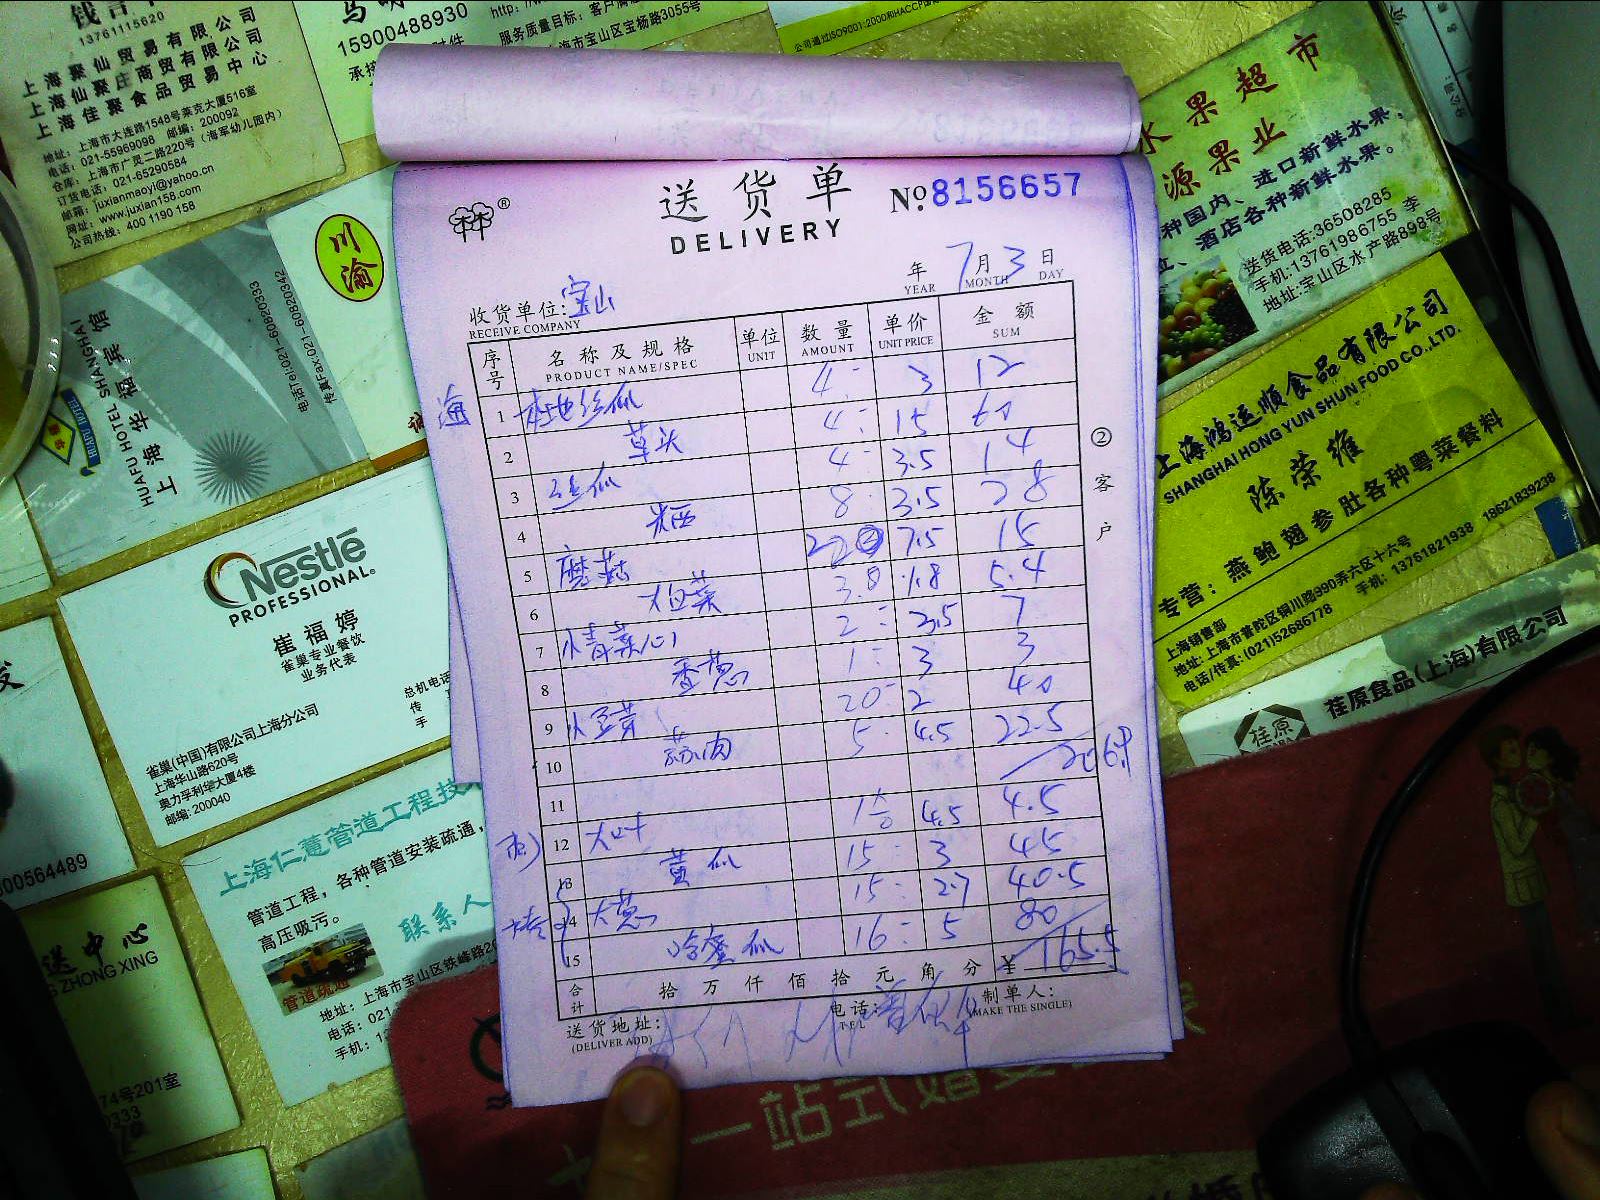 13761115620
上海聚仙贸易有限公司
上海仙聚庄商贸有限公司
上海佳聚食品贸易中心
地址：上海市大连路1548号莱克大厦516室
电话：021-55969098 邮编：200092
仓库：上海市广灵二路220号（海军幼儿园内）
订货电话：021-65290584
邮箱：juxianmaoyi@yahoo.cn
网址：www.juxian158.com
公司热线：400 1190 158
15900488930
服务质量目标：客户满
海市宝山区宝杨路3055号
公司通过ISO9001:2000和HACCP
水果超市
源果业
种国内、进口新鲜水果，
酒店各种新鲜水果。
送货电话:36508285
手机:13761986755 李
地址:宝山区水产路898号
川渝
HUAFU HOTEL SHANGHAI
上海华福宾馆
HUAFU HOTEL
电话Tel:021-60820333
传真Fax:021-60820342
送货单
DELIVERY
No.8156657
年 7月 3日
YEAR MONTH DAY
收货单位:宝山
RECEIVE COMPANY
序号 名称及规格 单位 数量 单价 金额
PRODUCT NAME/SPEC UNIT AMOUNT UNIT PRICE SUM
海 1 本地丝瓜 4 3 12
2 草头 4 15 60
3 丝瓜 4 3.5 14
4 8 3.5 28
5 蘑菇 7.5 15
6 大白菜 3.8 1.8 5.4
7 小青菜心 2 3.5 7
8 香葱 1 3 3
9 小豆芽 20 2 40
10 蒜肉 5 4.5 22.5
11 206.9
12 大叶 4.5 4.5
13 黄瓜 15 3 45
14 大葱 15 2.7 40.5
15 哈蜜瓜 16 5 80
合计 拾万仟佰拾元角分 ¥ 165.5
送货地址:
(DELIVER ADD)
电话:
TEL
制单人:
(MAKE THE SINGLE)
②客户
上海鸿运顺食品有限公司
SHANGHAI HONG YUN SHUN FOOD CO.,LTD.
陈荣维
专营：燕鲍翅参肚各种粤菜餐料
上海销售部
地址：上海市普陀区铜川路990弄六区十六号
电话/传真：(021)52686778 手机：13761821938 18621839238
荏原食品(上海)有限公司
荏原
Nestlé
PROFESSIONAL.
崔福婷
雀巢专业餐饮
业务代表
总机电话
传
手
雀巢(中国)有限公司上海分公司
上海华山路620号
奥力孚利华大厦4楼
邮编：200040
00564489
上海仁薏管道工程技
管道工程，各种管道安装疏通，
高压吸污。
联系人
管道疏通
地址：上海市宝山区铁峰路2
电话：021
手机：1
送中心
ZHONG XING
74号201室
0333
一站式婚